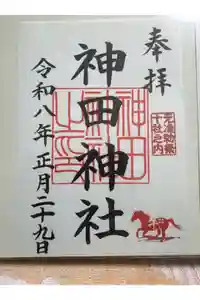 奉拝
元准勅祭
十社之内
神田神社
神田
神社
之印
令和八年正月二十九日